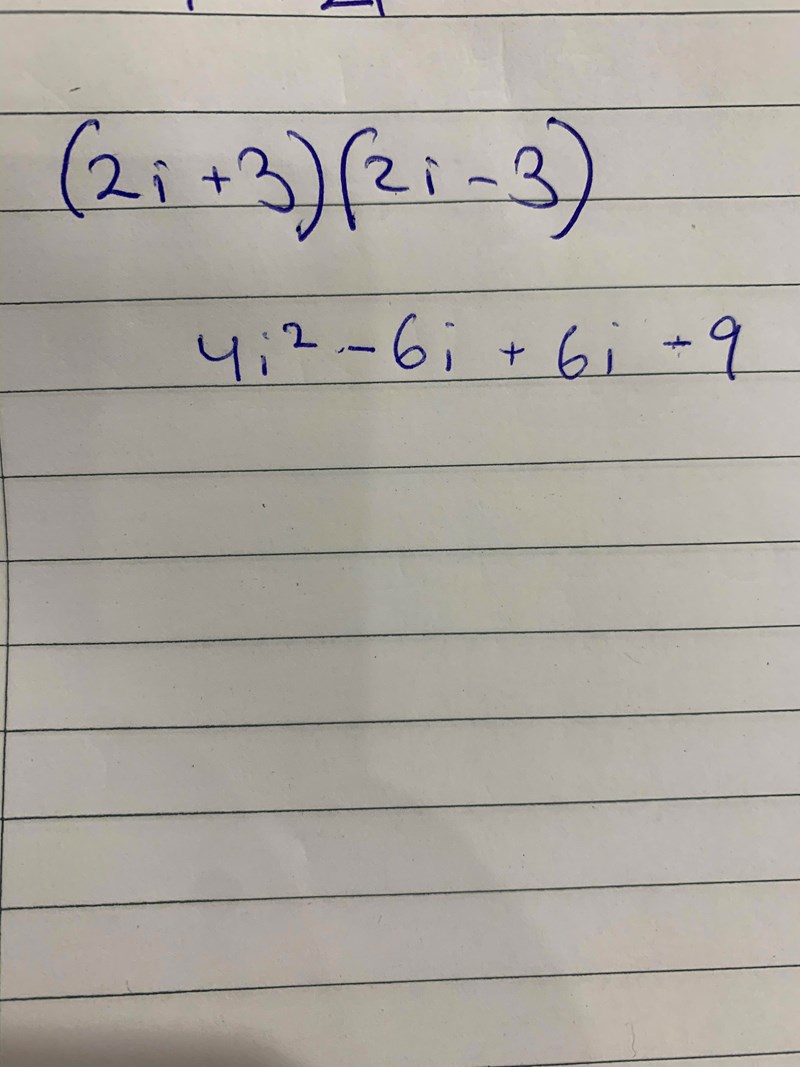 (2i + 3)(2i - 3)
4i² - 6i + 6i - 9